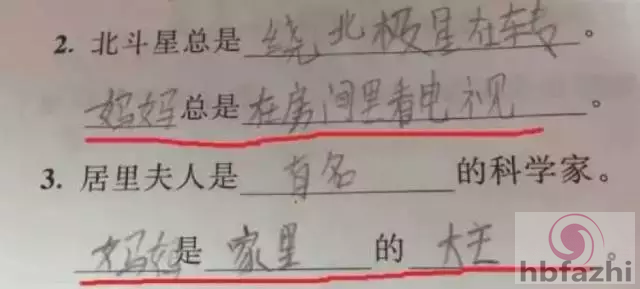 2. 北斗星总是绕北极星在转。
妈妈总是在房间里看电视。
3. 居里夫人是有名的科学家。
妈妈是家里的大王。
hbfazhi